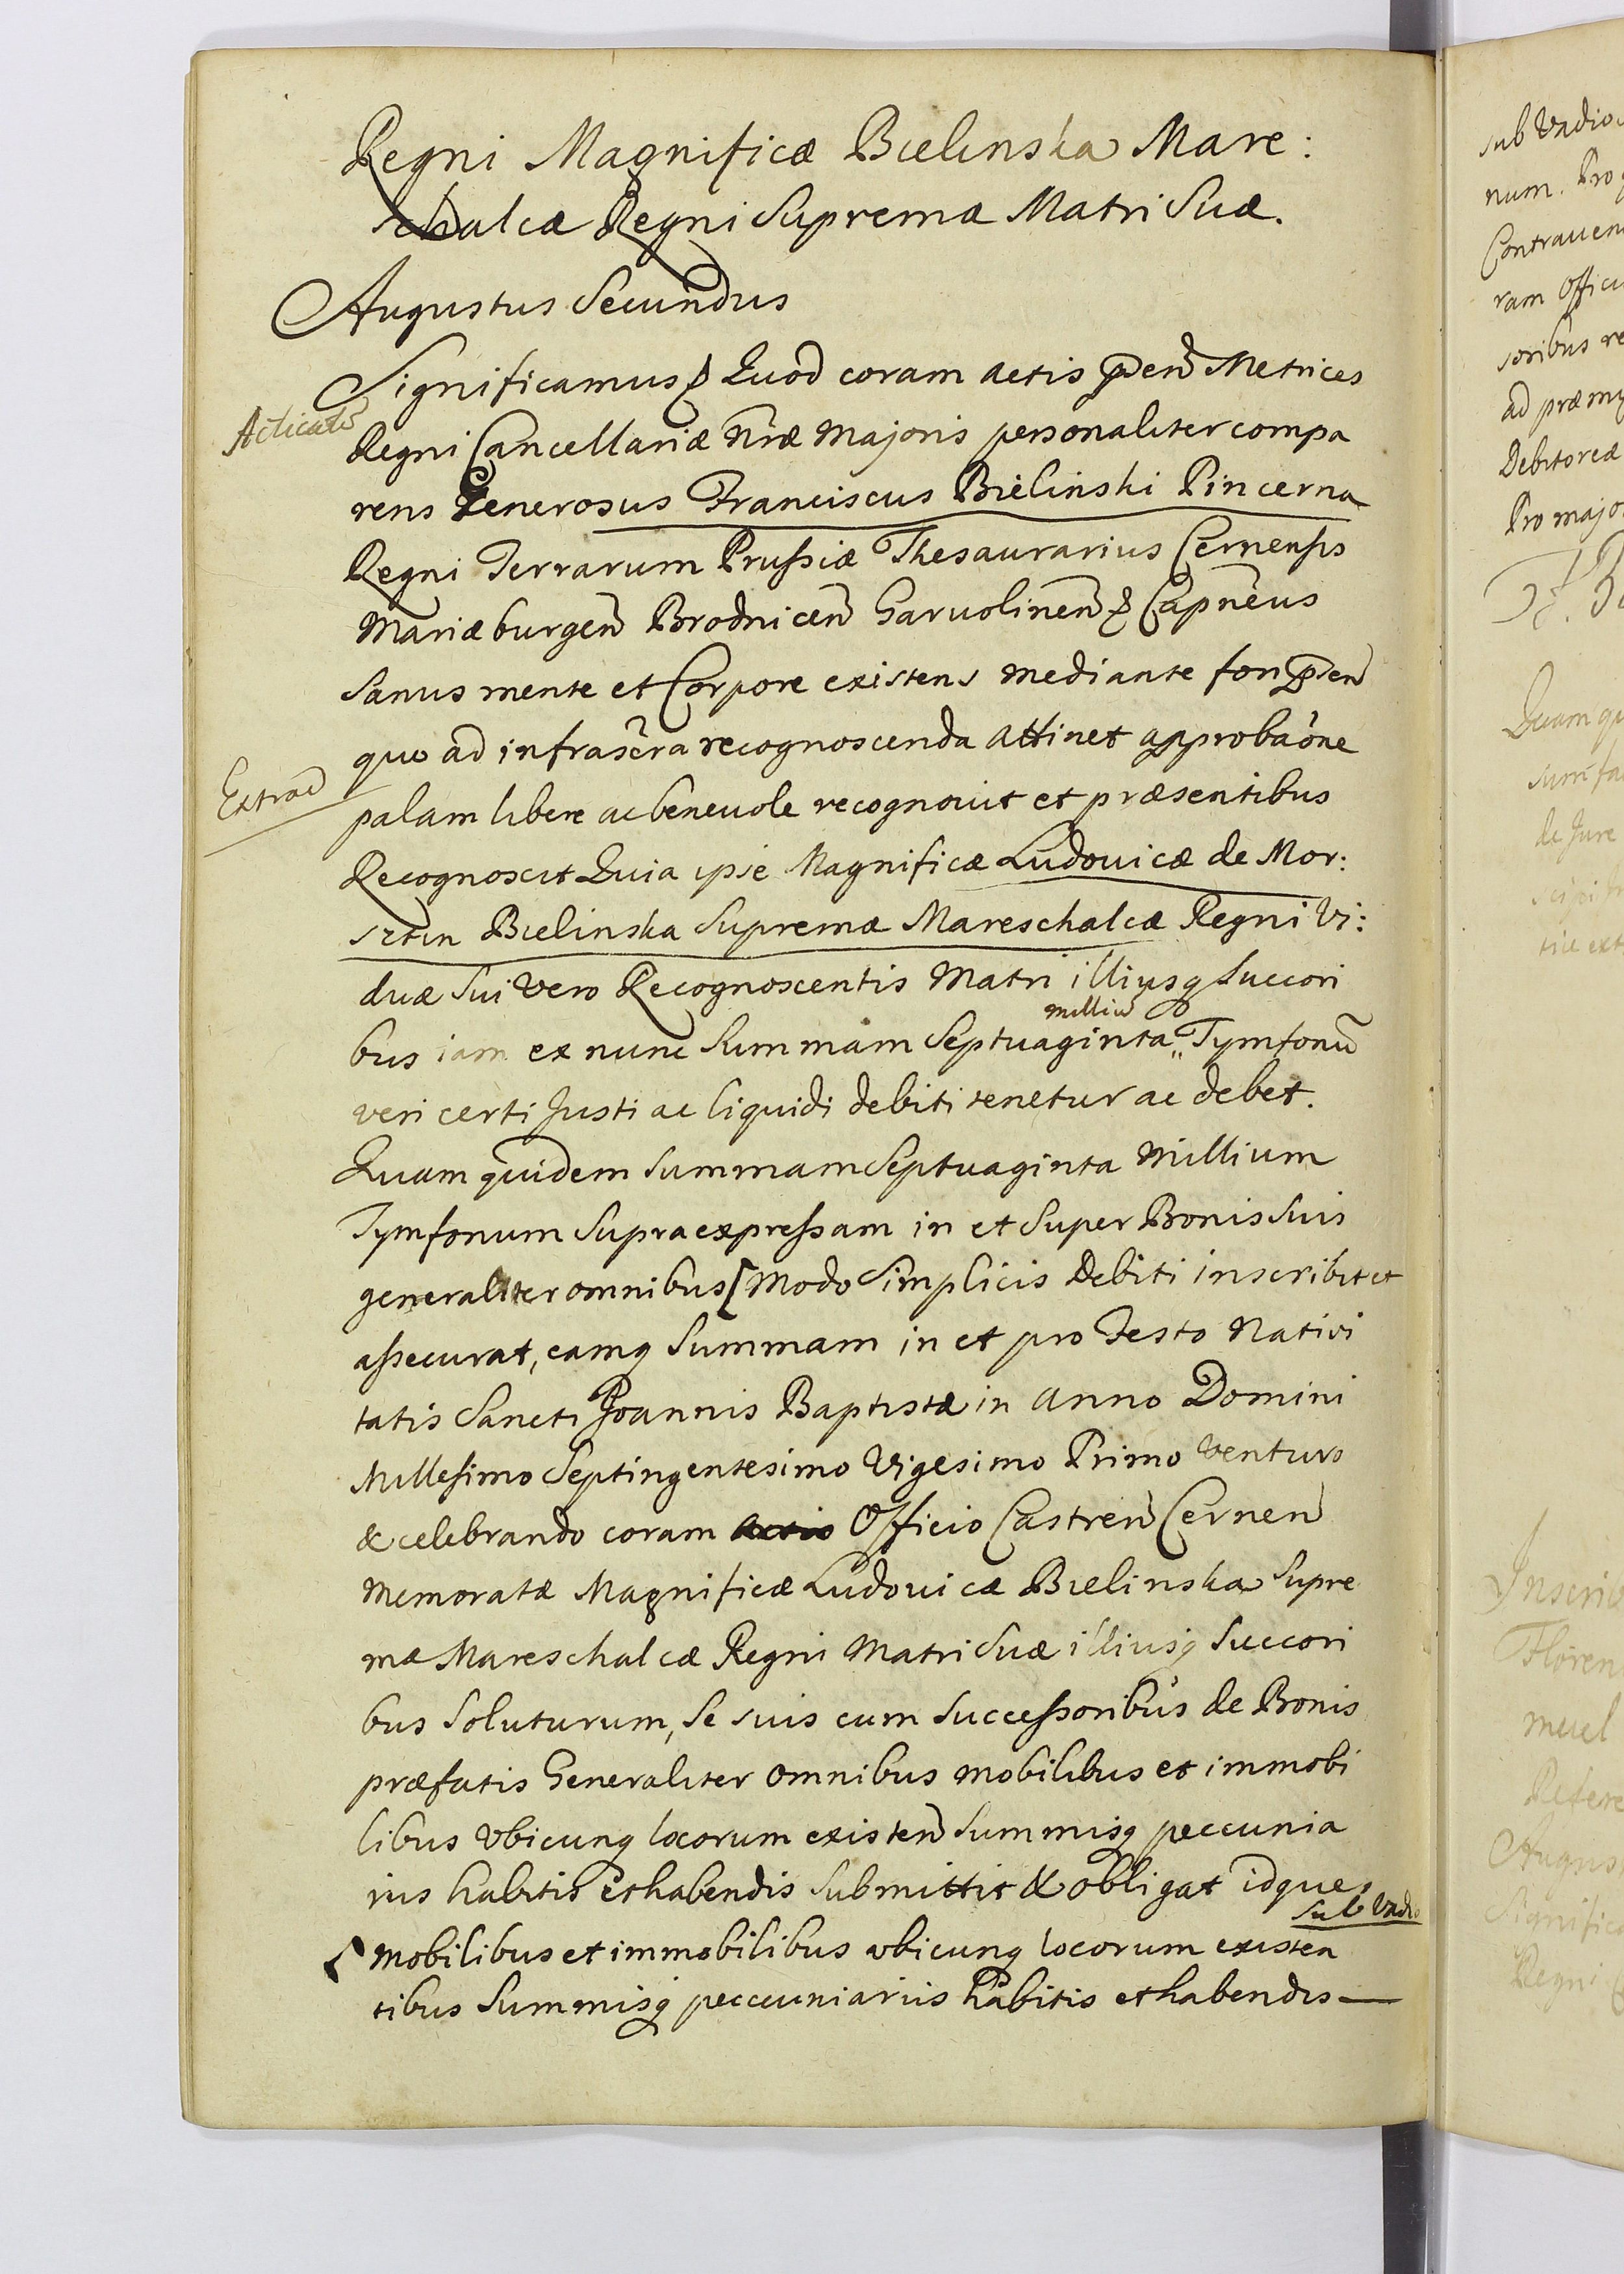 Regni Magnificæ Bielinska Mare:
schalcæ Regni Supremæ Matri Suæ.
Augustus Secundus
Significamus & Quod coram actis pñden Metrices
Acticatũ
Regni Cancellariæ Nræ Majoris personaliter compa
rens Generosus Franciscus Bielinski Pincerna
Regni Terrarum Prussiæ Thesaurarius Cernensis
Mariæburgen Brodnicen Garvolinen & Capneus
Sanus mente et Corpore existens mediante sen
quo ad infrascra recognoscenda attinet approbaõne
Extrad
palam libere ac benevole recognovit et præsentibus
Recognoscit Quia ipse Magnificæ Ludovicæ de Mor:
sztin Bielinska Supremæ Mareschalcæ Regni Vi:
duæ Sui vero Recognoscentis Matri illiusq Succori
bus iam ex nunc Summam Septuaginta milliũ Tymfonũ
veri certi Justi ac liquidi debiti tenetur ac debet.
Quam quidem Summam Septuaginta Millium
Tymfonum Supraexpressam in et Super Bonis Suis
generaliter omnibus [Modo Simplicis Debiti inscribit et
assecurat, eamq Summam in et pro Festo Nativi
tatis Sancti Joannis Baptistæ in anno Domini
Millesimo Septingentesimo Vigesimo Primo venturo
& celebrando coram Actis Officio Castren Cernen
Memoratæ Magnificæ Ludovicæ Bielinska Supre
mæ Mareschalcæ Regni Matri Suæ illiusq Succori
bus Soluturum, Se suis cum Successoribus de Bonis
præfatis Generaliter omnibus mobilibus et immobi
libus ubicunq locorum existen Summisq peccunia
riis habitis et habendis Submittit & obligat idque
Sub Vadio
Mobilibus et immobilibus ubicunq locorum existen
tibus Summisq peccuniariis habitis et habendis —
sub Vadio
num. Pro
Contraven
ram Offici
soribus re
ad præmi
Debitoreæ
Pro major
Quam qu
de Jure
Inscrib
Floren
Refere
Augus
Significa
Regni